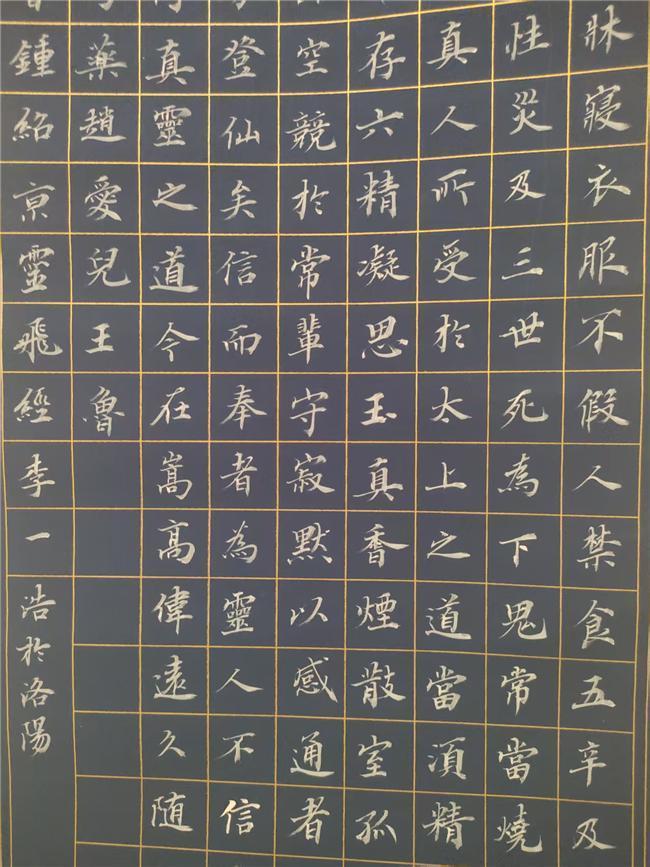 牀寢衣服不假人禁食五辛及
性災及三世死為下鬼常當燒
真人所受於太上之道當須精
存六精凝思玉真香煙散室孤
空競於常輩守寂默以感通者
登仙矣信而奉者為靈人不信
真靈之道今在嵩高偉遠久随
藥趙愛兒王魯
鍾紹京靈飛經李一浩於洛陽